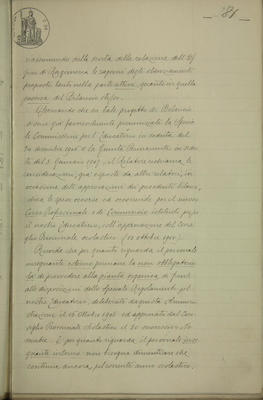 81
riassumendo nella scorta della relazione dell'Uf
ficio di Ragioneria le ragioni degli stanziamenti
proposti tanto nella parte attiva, quanto in quella
passiva del Bilancio stesso.
Osservando che su tale progetto di Bilancio
si sono già favorevolmente pronunziate la Specia
le Commissione per l'Educatorio in seduta del
20 dicembre 1906 e la Giunta Permanente in sedu
ta del 5 Gennaio 1907, il Relatore richiama le
considerazioni, già esposte da altri relatori, in
occasione delle approvazioni dei precedenti bilanci,
circa le gravi occorse ed occorrende per il nuovo
Corso Professionale e di Commercio istituito per
il nostro Educatorio, coll'approvazione del Con
siglio Provinciale scolastico
Ricorda che per quanto riguarda il personale
insegnante permane la non obbligatorie
tà di provvedere alla pianta organica di fronte
alle disposizioni dello speciale Regolamento pel
nostro Educatorio, deliberato da questa Ammini
strazione il 16 Ottobre 1905 ed approvato dal Con
siglio Provinciale Scolastico il 20 successivo No
vembre. E per quanto riguarda il personale inse
gnante interno non bisogna dimenticare che
continua ancora, pel corrente anno scolastico,